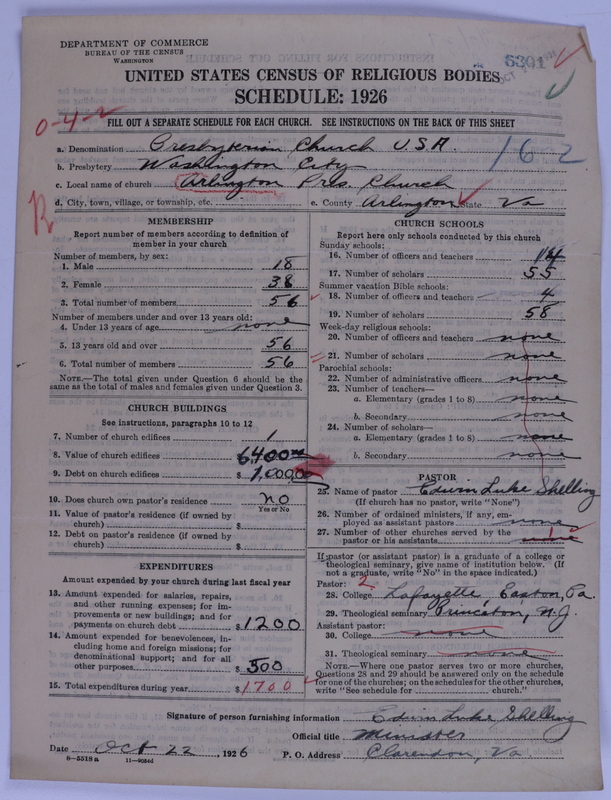 DEPARTMENT OF COMMERCE
BUREAU OF THE CENSUS
WASHINGTON
6301
UNITED STATES CENSUS OF RELIGIOUS BODIES
SCHEDULE: 1926
0-4-2
FILL OUT A SEPARATE SCHEDULE FOR EACH CHURCH. SEE INSTRUCTIONS ON THE BACK OF THIS SHEET
a. Denomination Presbyterian Church U.S.A.
162
b. Presbytery Washington City
c. Local name of church Arlington Pres. Church
d. City, town, village, or township, etc. e. County Arlington State Va
MEMBERSHIP
Report number of members according to definition of member in your church
Number of members, by sex:
1. Male 18
2. Female 38
3. Total number of members 56
Number of members under and over 13 years old:
4. Under 13 years of age none
5. 13 years old and over 56
6. Total number of members 56
NOTE.—The total given under Question 6 should be the same as the total of males and females given under Question 3.
CHURCH BUILDINGS
See instructions, paragraphs 10 to 12
7. Number of church edifices 1
8. Value of church edifices $6400.00
9. Debt on church edifices $1,000.00
10. Does church own pastor's residence No
Yes or No
11. Value of pastor's residence (if owned by church) $
12. Debt on pastor's residence (if owned by church) $
EXPENDITURES
Amount expended by your church during last fiscal year
13. Amount expended for salaries, repairs, and other running expenses; for improvements or new buildings; and for payments on church debt $1200
14. Amount expended for benevolences, including home and foreign missions; for denominational support; and for all other purposes $500
15. Total expenditures during year $1700
CHURCH SCHOOLS
Report here only schools conducted by this church
Sunday schools:
16. Number of officers and teachers 14
17. Number of scholars 55
Summer vacation Bible schools:
18. Number of officers and teachers 4
19. Number of scholars 58
Week-day religious schools:
20. Number of officers and teachers none
21. Number of scholars none
Parochial schools:
22. Number of administrative officers none
23. Number of teachers—
a. Elementary (grades 1 to 8) none
b. Secondary none
24. Number of scholars—
a. Elementary (grades 1 to 8) none
b. Secondary none
PASTOR
25. Name of pastor Edwin Luke Shelling
(If church has no pastor, write "None")
26. Number of ordained ministers, if any, employed as assistant pastors none
27. Number of other churches served by the pastor or his assistants 1
If pastor (or assistant pastor) is a graduate of a college or theological seminary, give name of institution below. (If not a graduate, write "No" in the space indicated.)
Pastor: 2
28. College Lafayette, Easton, Pa.
29. Theological seminary Princeton, N.J.
Assistant pastor:
30. College none
31. Theological seminary none
NOTE.—Where one pastor serves two or more churches, Questions 28 and 29 should be answered only on the schedule for one of the churches; on the schedules for the other churches, write "See schedule for church."
Signature of person furnishing information Edwin Luke Shelling
Official title Minister
Date Oct 22, 1926 P. O. Address Clarendon, Va.
8—5518 a 11—9054d